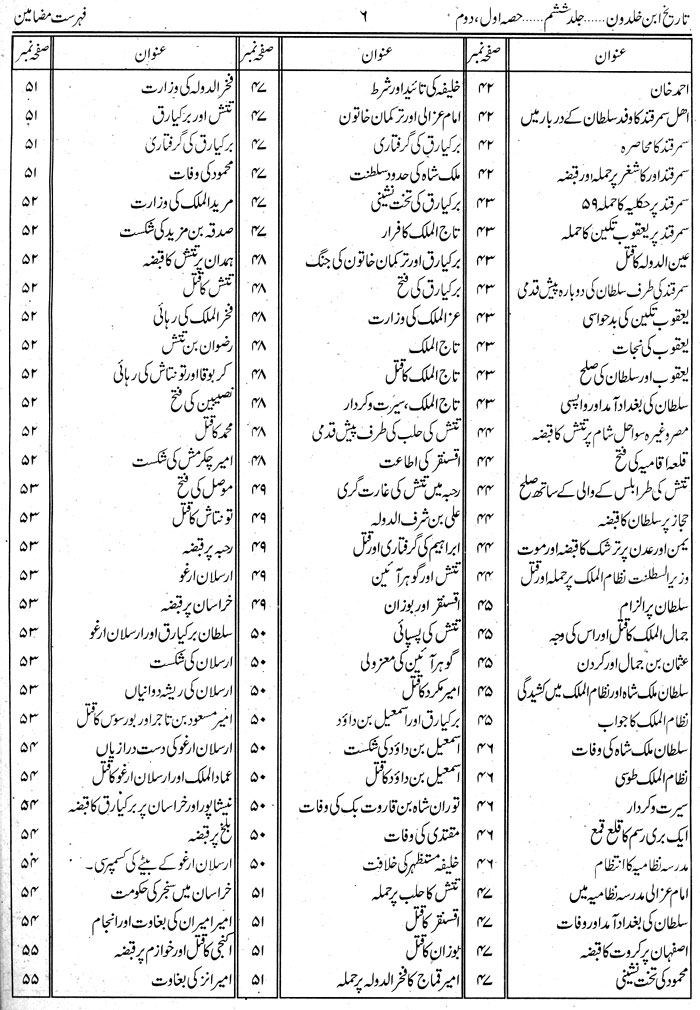 تاریخ ابن خلدون ...... جلد ششم ...... حصہ اول، دوم
۶
فہرست مضامین
عنوان
صفحہ نمبر
احمد خان ۴۲
اھل سمرقند کا وفد سلطان کے دربار میں ۴۲
سمرقند کا محاصرہ ۴۲
سمرقند اور کاشغر پر حملہ اور قبضہ ۴۲
سمرقند پر حکلیہ کا حملہ ۵۹ ۴۳
سمرقند پر یعقوب تکین کا حملہ ۴۳
عین الدولہ کا قتل ۴۳
سمرقند کی طرف سلطان کی دوبارہ پیش قدمی ۴۳
یعقوب تکین کی بدحواسی ۴۳
یعقوب کی نجات ۴۳
یعقوب اور سلطان کی صلح ۴۳
سلطان کی بغداد آمد اور واپسی ۴۳
مصر وغیرہ سواحل شام پر تتش کا قبضہ ۴۴
قلعہ اقامیہ کی فتح ۴۴
تتش کی طرابلس کے والی کے ساتھ صلح ۴۴
حجاز پر سلطان کا قبضہ ۴۴
یمن اور عدن پر ترشک کا قبضہ اور موت ۴۴
وزیر السطلنت نظام الملک پر حملہ اور قتل ۴۴
سلطان پر الزام ۴۵
جمال الملک کا قتل اور اس کی وجہ ۴۵
عثمان بن جمال اور کردن ۴۵
سلطان ملک شاہ اور نظام الملک میں کشیدگی ۴۵
نظام الملک کا جواب ۴۵
سلطان ملک شاہ کی وفات ۴۶
نظام الملک طوسی ۴۶
سیرت و کردار ۴۶
ایک بری رسم کا قلع قمع ۴۶
مدرسہ نظامیہ کا انتظام ۴۶
امام غزالی مدرسہ نظامیہ میں ۴۷
سلطان کی بغداد آمد اور وفات ۴۷
اصفہان پر کروت کا قبضہ ۴۷
محمود کی تخت نشینی ۴۷
عنوان
صفحہ نمبر
خلیفہ کی تائید اور شرط ۴۷
امام غزالی اور ترکمان خاتون ۴۷
برکیارق کی گرفتاری ۴۷
ملک شاہ کی حدود سلطنت ۴۷
برکیارق کی تخت نشینی ۴۷
تاج الملک کا فرار ۴۷
برکیارق اور ترکمان خاتون کی جنگ ۴۸
برکیارق کی فتح ۴۸
عز الملک کی وزارت ۴۸
تاج الملک ۴۸
تاج الملک کا قتل ۴۸
تاج الملک، سیرت و کردار ۴۸
تتش کی حلب کی طرف پیش قدمی ۴۸
اقسنقر کی اطاعت ۴۸
رحبہ میں تتش کی غارت گری ۴۹
علی بن شرف الدولہ ۴۹
ابراہیم کی گرفتاری اور قتل ۴۹
تتش اور گوہر آئین ۴۹
اقسنقر اور بوزان ۴۹
تتش کی پسپائی ۵۰
گوہر آئین کی معزولی ۵۰
امیر مکرد کا قتل ۵۰
برکیارق اور اسمعیل بن داؤد ۵۰
اسمعیل بن داؤد کی شکست ۵۰
اسمعیل بن داؤد کا قتل ۵۰
توران شاہ بن قاروت بک کی وفات ۵۰
مقتدی کی وفات ۵۰
خلیفہ مستظہر کی خلافت ۵۰
تتش کا حلب پر حملہ ۵۱
اقسنقر کا قتل ۵۱
بوزان کا قتل ۵۱
امیر قماج کا فخر الدولہ پر حملہ ۵۱
عنوان
صفحہ نمبر
فخر الدولہ کی وزارت ۵۱
تتش اور برکیارق ۵۱
برکیارق کی گرفتاری ۵۱
محمود کی وفات ۵۱
مرید الملک کی وزارت ۵۲
صدقہ بن مزید کی شکست ۵۲
ہمدان پر تتش کا قبضہ ۵۲
تتش کا قتل ۵۲
فخر الملک کی رہائی ۵۲
رضوان بن تتش ۵۲
کربوقا اور تونتاش کی رہائی ۵۲
نصیبین کی فتح ۵۲
محمد کا قتل ۵۲
امیر چکرمش کی شکست ۵۲
موصل کی فتح ۵۳
تونتاش کا قتل ۵۳
رحبہ پر قبضہ ۵۳
ارسلان ارغو ۵۳
خراسان پر قبضہ ۵۳
سلطان برکیارق اور ارسلان ارغو ۵۳
ارسلان کی شکست ۵۳
ارسلان کی ریشہ دوانیاں ۵۳
امیر مسعود بن تاجر اور بورسوس کا قتل ۵۳
ارسلان ارغو کی دست درازیاں ۵۴
عماد الملک اور ارسلان ارغو کا قتل ۵۴
نیشاپور اور خراسان پر برکیارق کا قبضہ ۵۴
بلخ پر قبضہ ۵۴
ارسلان ارغو کے بیٹے کی کسمپرسی۔ ۵۴
خراسان میں سنجر کی حکومت ۵۴
امیر امیران کی بغاوت اور انجام ۵۴
اکنجی کا قتل اور خوازم پر قبضہ ۵۵
امیر انز کی بغاوت ۵۵